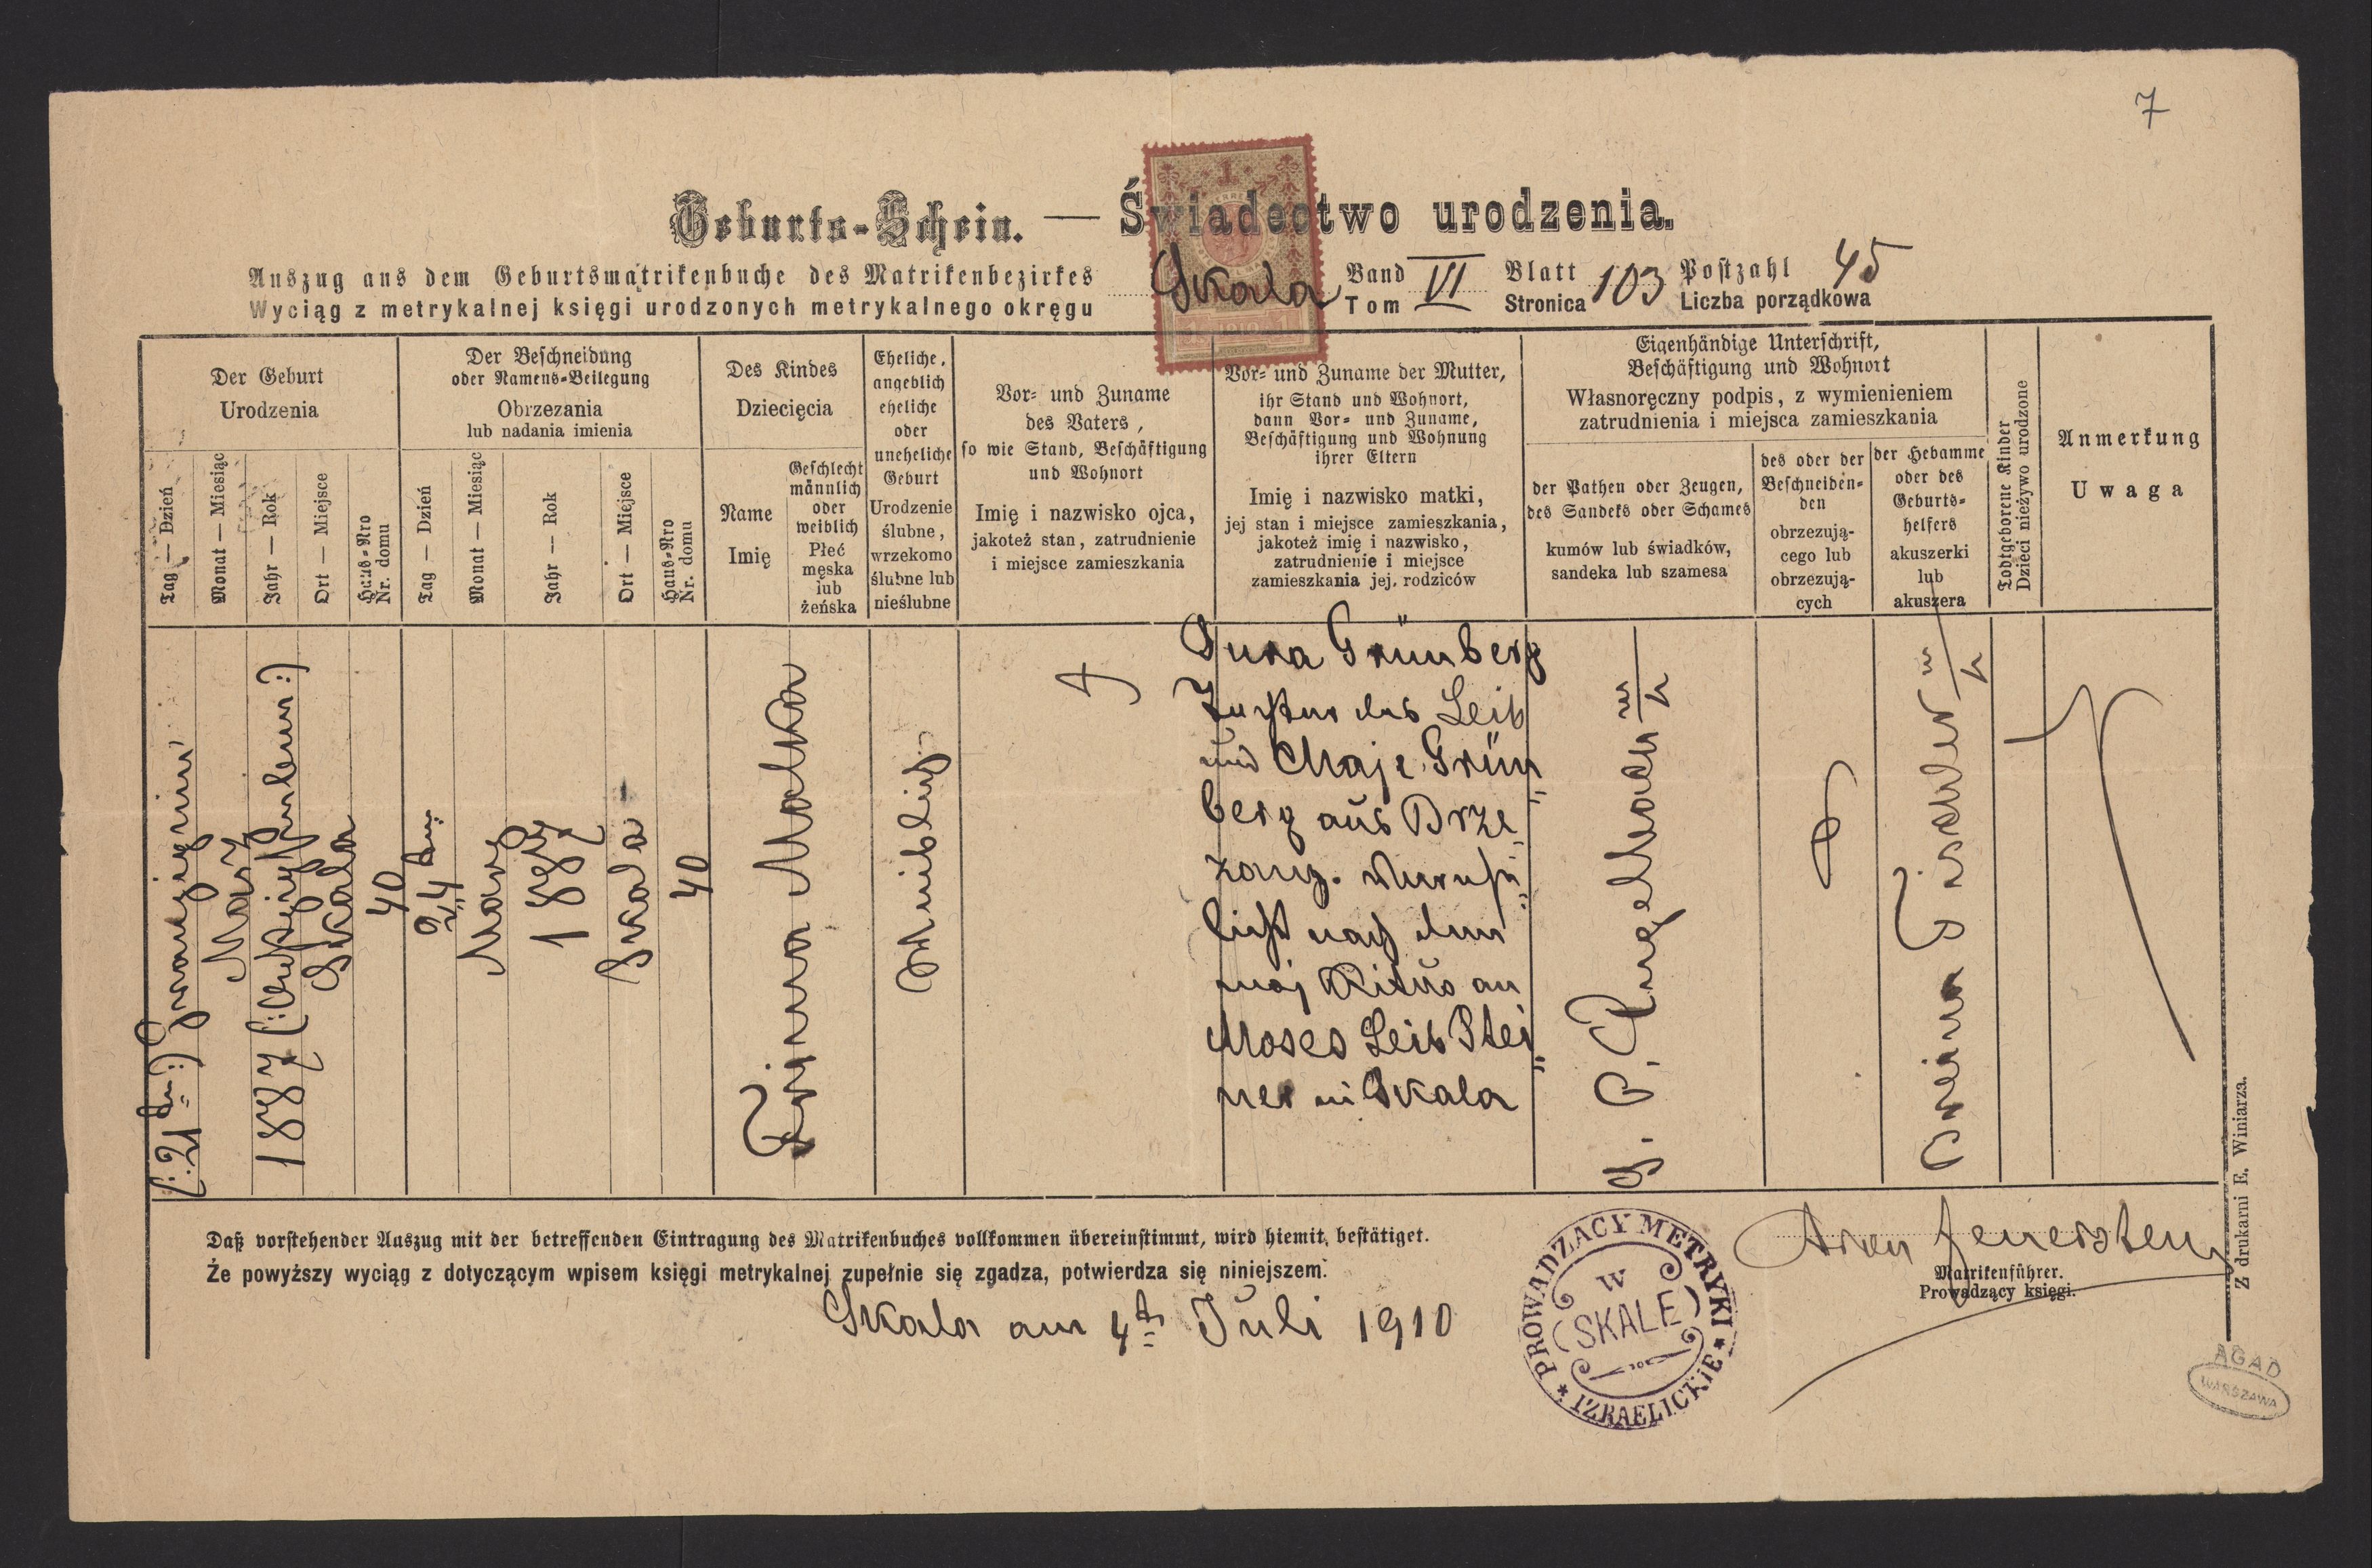 7
Geburts-Schein. — Świadectwo urodzenia.
Auszug aus dem Geburtsmatrikenbuche des Matrikenbezirkes Skala Band VI Blatt 103 Postzahl 45
Wyciąg z metrykalnej księgi urodzonych metrykalnego okręgu Tom Stronica Liczba porządkowa
1
1910
Der Geburt
Urodzenia
Tag — Dzień
Monat — Miesiąc
Jahr — Rok
Ort — Miejsce
Haus-Nro
Nr. domu
Der Beschneidung
oder Namens-Beilegung
Obrzezania
lub nadania imienia
Tag — Dzień
Monat — Miesiąc
Jahr — Rok
Ort — Miejsce
Haus-Nro
Nr. domu
Des Kindes
Dziecięcia
Name
Imię
Geschlecht
männlich
oder
weiblich
Płeć
męska
lub
żeńska
Eheliche,
angeblich
eheliche
oder
uneheliche
Geburt
Urodzenie
ślubne,
wrzekomo
ślubne lub
nieślubne
Vor- und Zuname
des Vaters,
so wie Stand, Beschäftigung
und Wohnort
Imię i nazwisko ojca,
jakoteż stan, zatrudnienie
i miejsce zamieszkania
Vor- und Zuname der Mutter,
ihr Stand und Wohnort,
dann Vor- und Zuname,
Beschäftigung und Wohnung
ihrer Eltern
Imię i nazwisko matki,
jej stan i miejsce zamieszkania,
jakoteż imię i nazwisko,
zatrudnienie i miejsce
zamieszkania jej. rodziców
Eigenhändige Unterschrift,
Beschäftigung und Wohnort
Własnoręczny podpis, z wymienieniem
zatrudnienia i miejsca zamieszkania
der Pathen oder Zeugen,
des Sandeks oder Schames
kumów lub świadków,
sandeka lub szamesa
des oder der
Beschneiden-
den
obrzezują-
cego lub
obrzezują-
cych
der Hebamme
oder des
Geburts-
helfers
akuszerki
lub
akuszera
Todtgeborene Kinder
Dzieci nieżywo urodzone
Anmerkung
Uwaga
(:21ten:)
März
1887
Skala
40
24ten
März
1887
Skala
40
Malka
weiblich
Grünberg
Tochter des Leib
und Maje Grün
berg aus Brze
zany.
licht nach dem
mos. Ritus an
Moses Leib Stei
ner in Skala
Fischler
Daß vorstehender Auszug mit der betreffenden Eintragung des Matrikenbuches vollkommen übereinstimmt, wird hiemit bestätiget.
Że powyższy wyciąg z dotyczącym wpisem księgi metrykalnej zupełnie się zgadza, potwierdza się niniejszem.
Skala am 4ten Juli 1910
PROWADZĄCY METRYKI
IZRAELICKIE
W
SKALE
Feuerstein
Matrikenführer.
Prowadzący księgi.
Z drukarni E. Winiarza.
AGAD
WARSZAWA